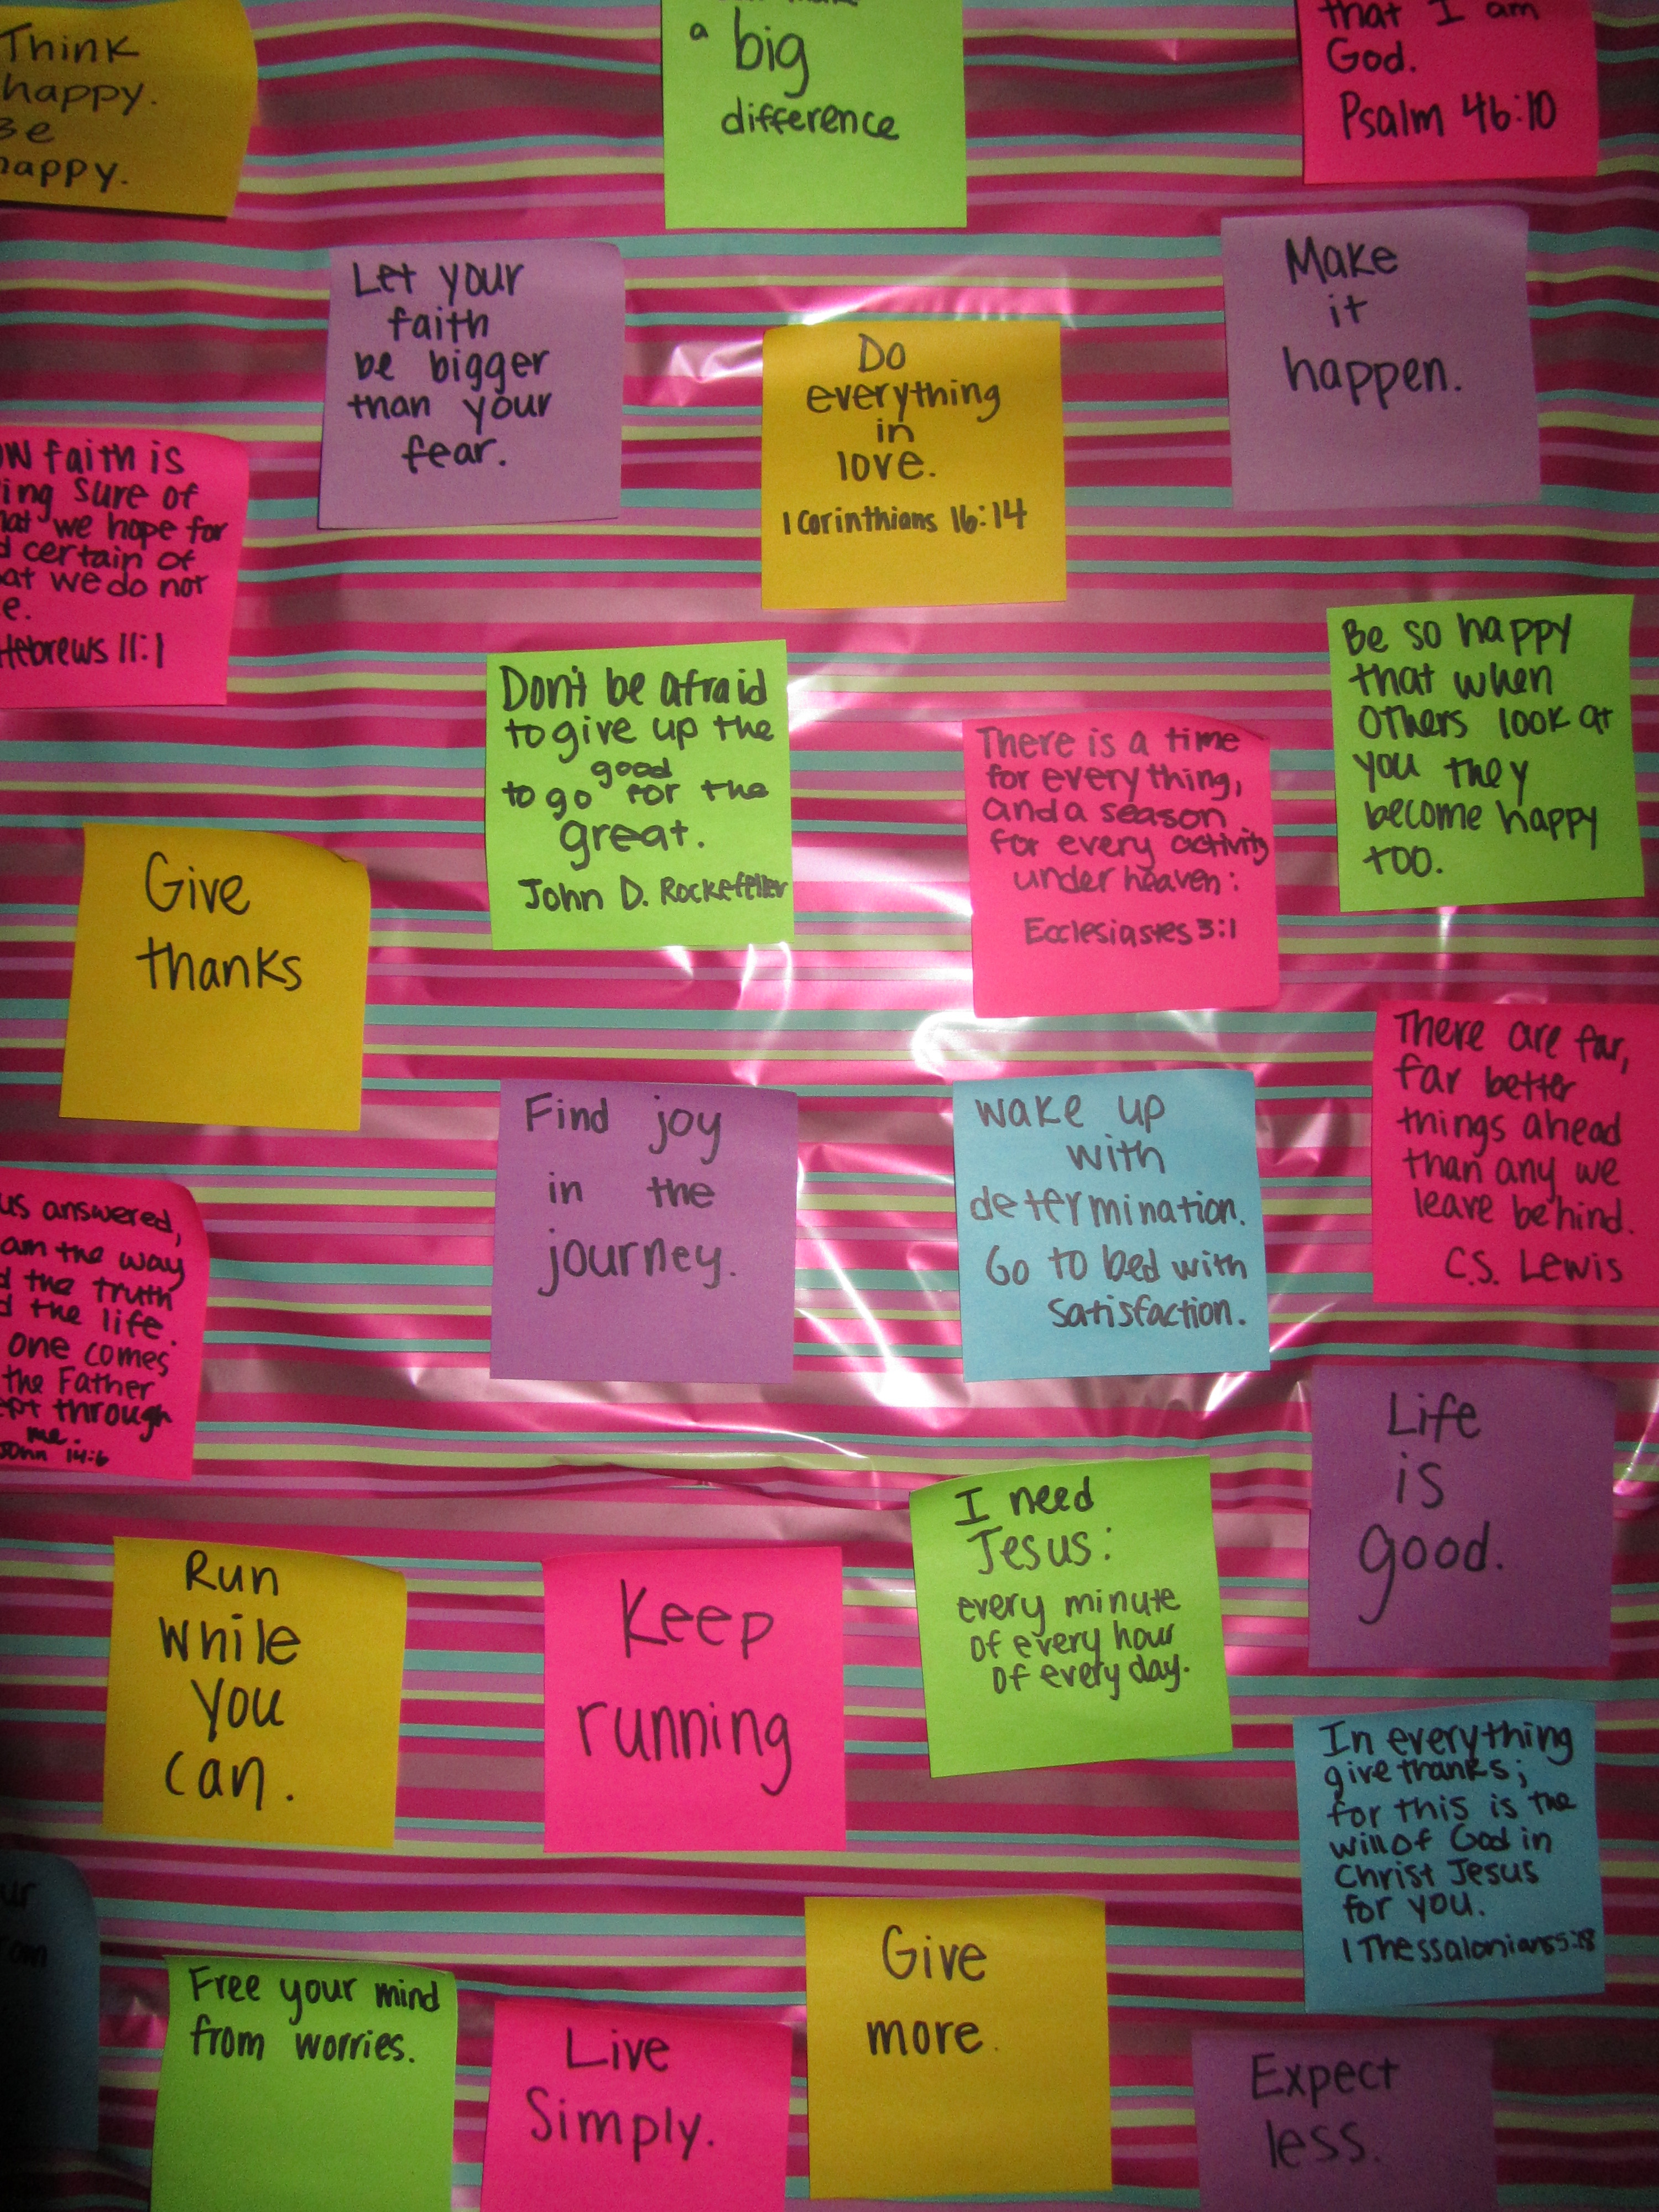 Think
happy.
Be
happy.
a big
difference
that I am
God.
Psalm 46:10
Let your
faith
be bigger
than your
fear.
Do
everything
in
love.
1 Corinthians 16:14
Make
it
happen.
faith is
sure of
we hope for
certain of
we do not
Hebrews 11:1
Don't be afraid
to give up the
good
to go for the
great.
John D. Rockefeller
There is a time
for everything,
and a season
for every activity
under heaven:
Ecclesiastes 3:1
Be so happy
that when
others look at
you they
become happy
too.
Give
thanks
Find joy
in the
journey.
Wake up
with
determination.
Go to bed with
satisfaction.
There are far,
far better
things ahead
than any we
leave behind.
C.S. Lewis
answered,
am the way
the truth
the life.
one comes
the Father
through
me.
John 14:6
Life
is
good.
Run
while
you
can.
Keep
running
I need
Jesus:
every minute
of every hour
of every day.
In everything
give thanks;
for this is the
will of God in
Christ Jesus
for you.
1 Thessalonians 5:18
Free your mind
from worries.
Live
Simply.
Give
more.
Expect
less.